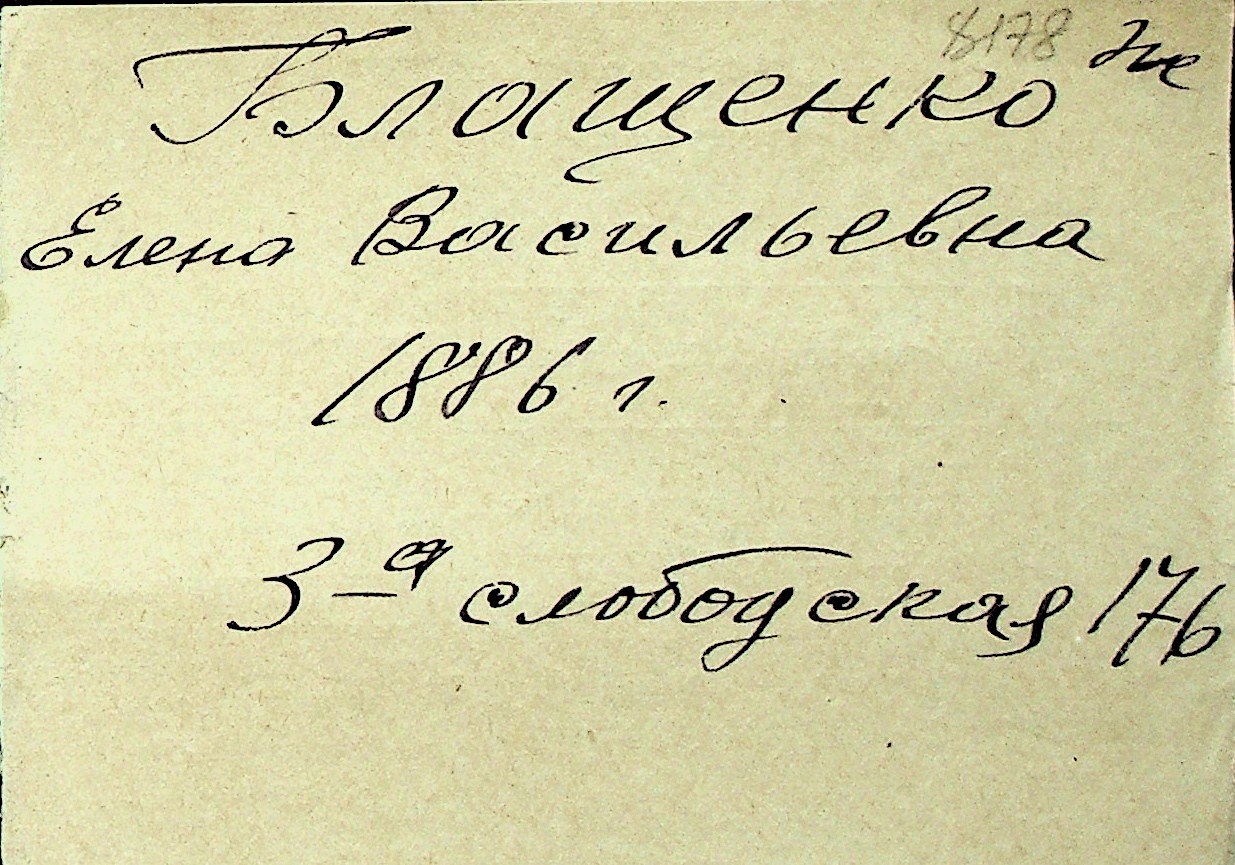 8178
Блащенко
Елена Васильевна
1886 г.
3-я слободская 176